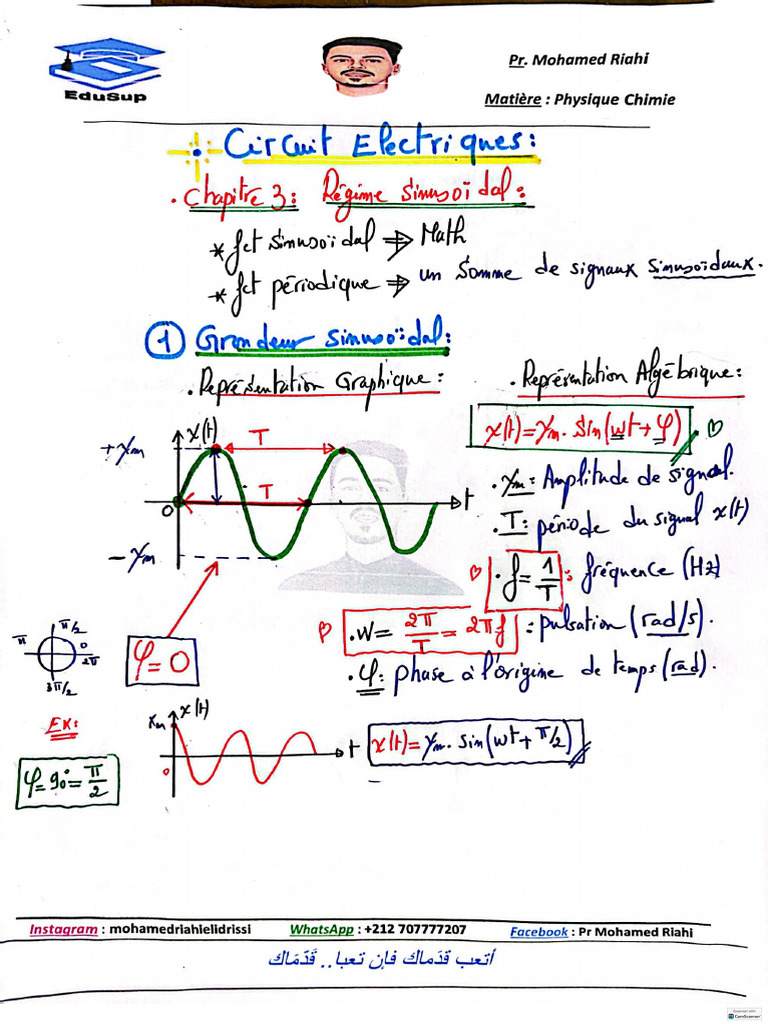 EduSup
Pr. Mohamed Riahi
Matière : Physique Chimie
Circuit Electriques:
. Chapitre 3: Régime Sinusoïdal:
* fct sinusoïdal ⇒ Math
* fct périodique ⇒ un Somme de signaux sinusoïdaux.
1 Grandeur sinusoïdal:
. Représentation Graphique:
. Représentation Algébrique:
x(t)
+Xm
T
T
0
t
-Xm
φ=0
x(t)=Xm. sin(wt+φ)
. Xm: Amplitude de signal.
. T: période du signal x(t)
. f=1/T : fréquence (Hz)
. w= 2π/T = 2πf : pulsation (rad/s).
. φ: phase à l'origine de temps (rad).
π/2
π
0
2π
3π/2
Ex:
φ=90°=π/2
x(t)
Xm
0
t
x(t)=Xm. sin(wt+π/2)
Instagram : mohamedriahielidrissi
WhatsApp : +212 707777207
Facebook : Pr Mohamed Riahi
أتعب قدَماك فإن تعبا.. قَدَّمَاك
CamScanner